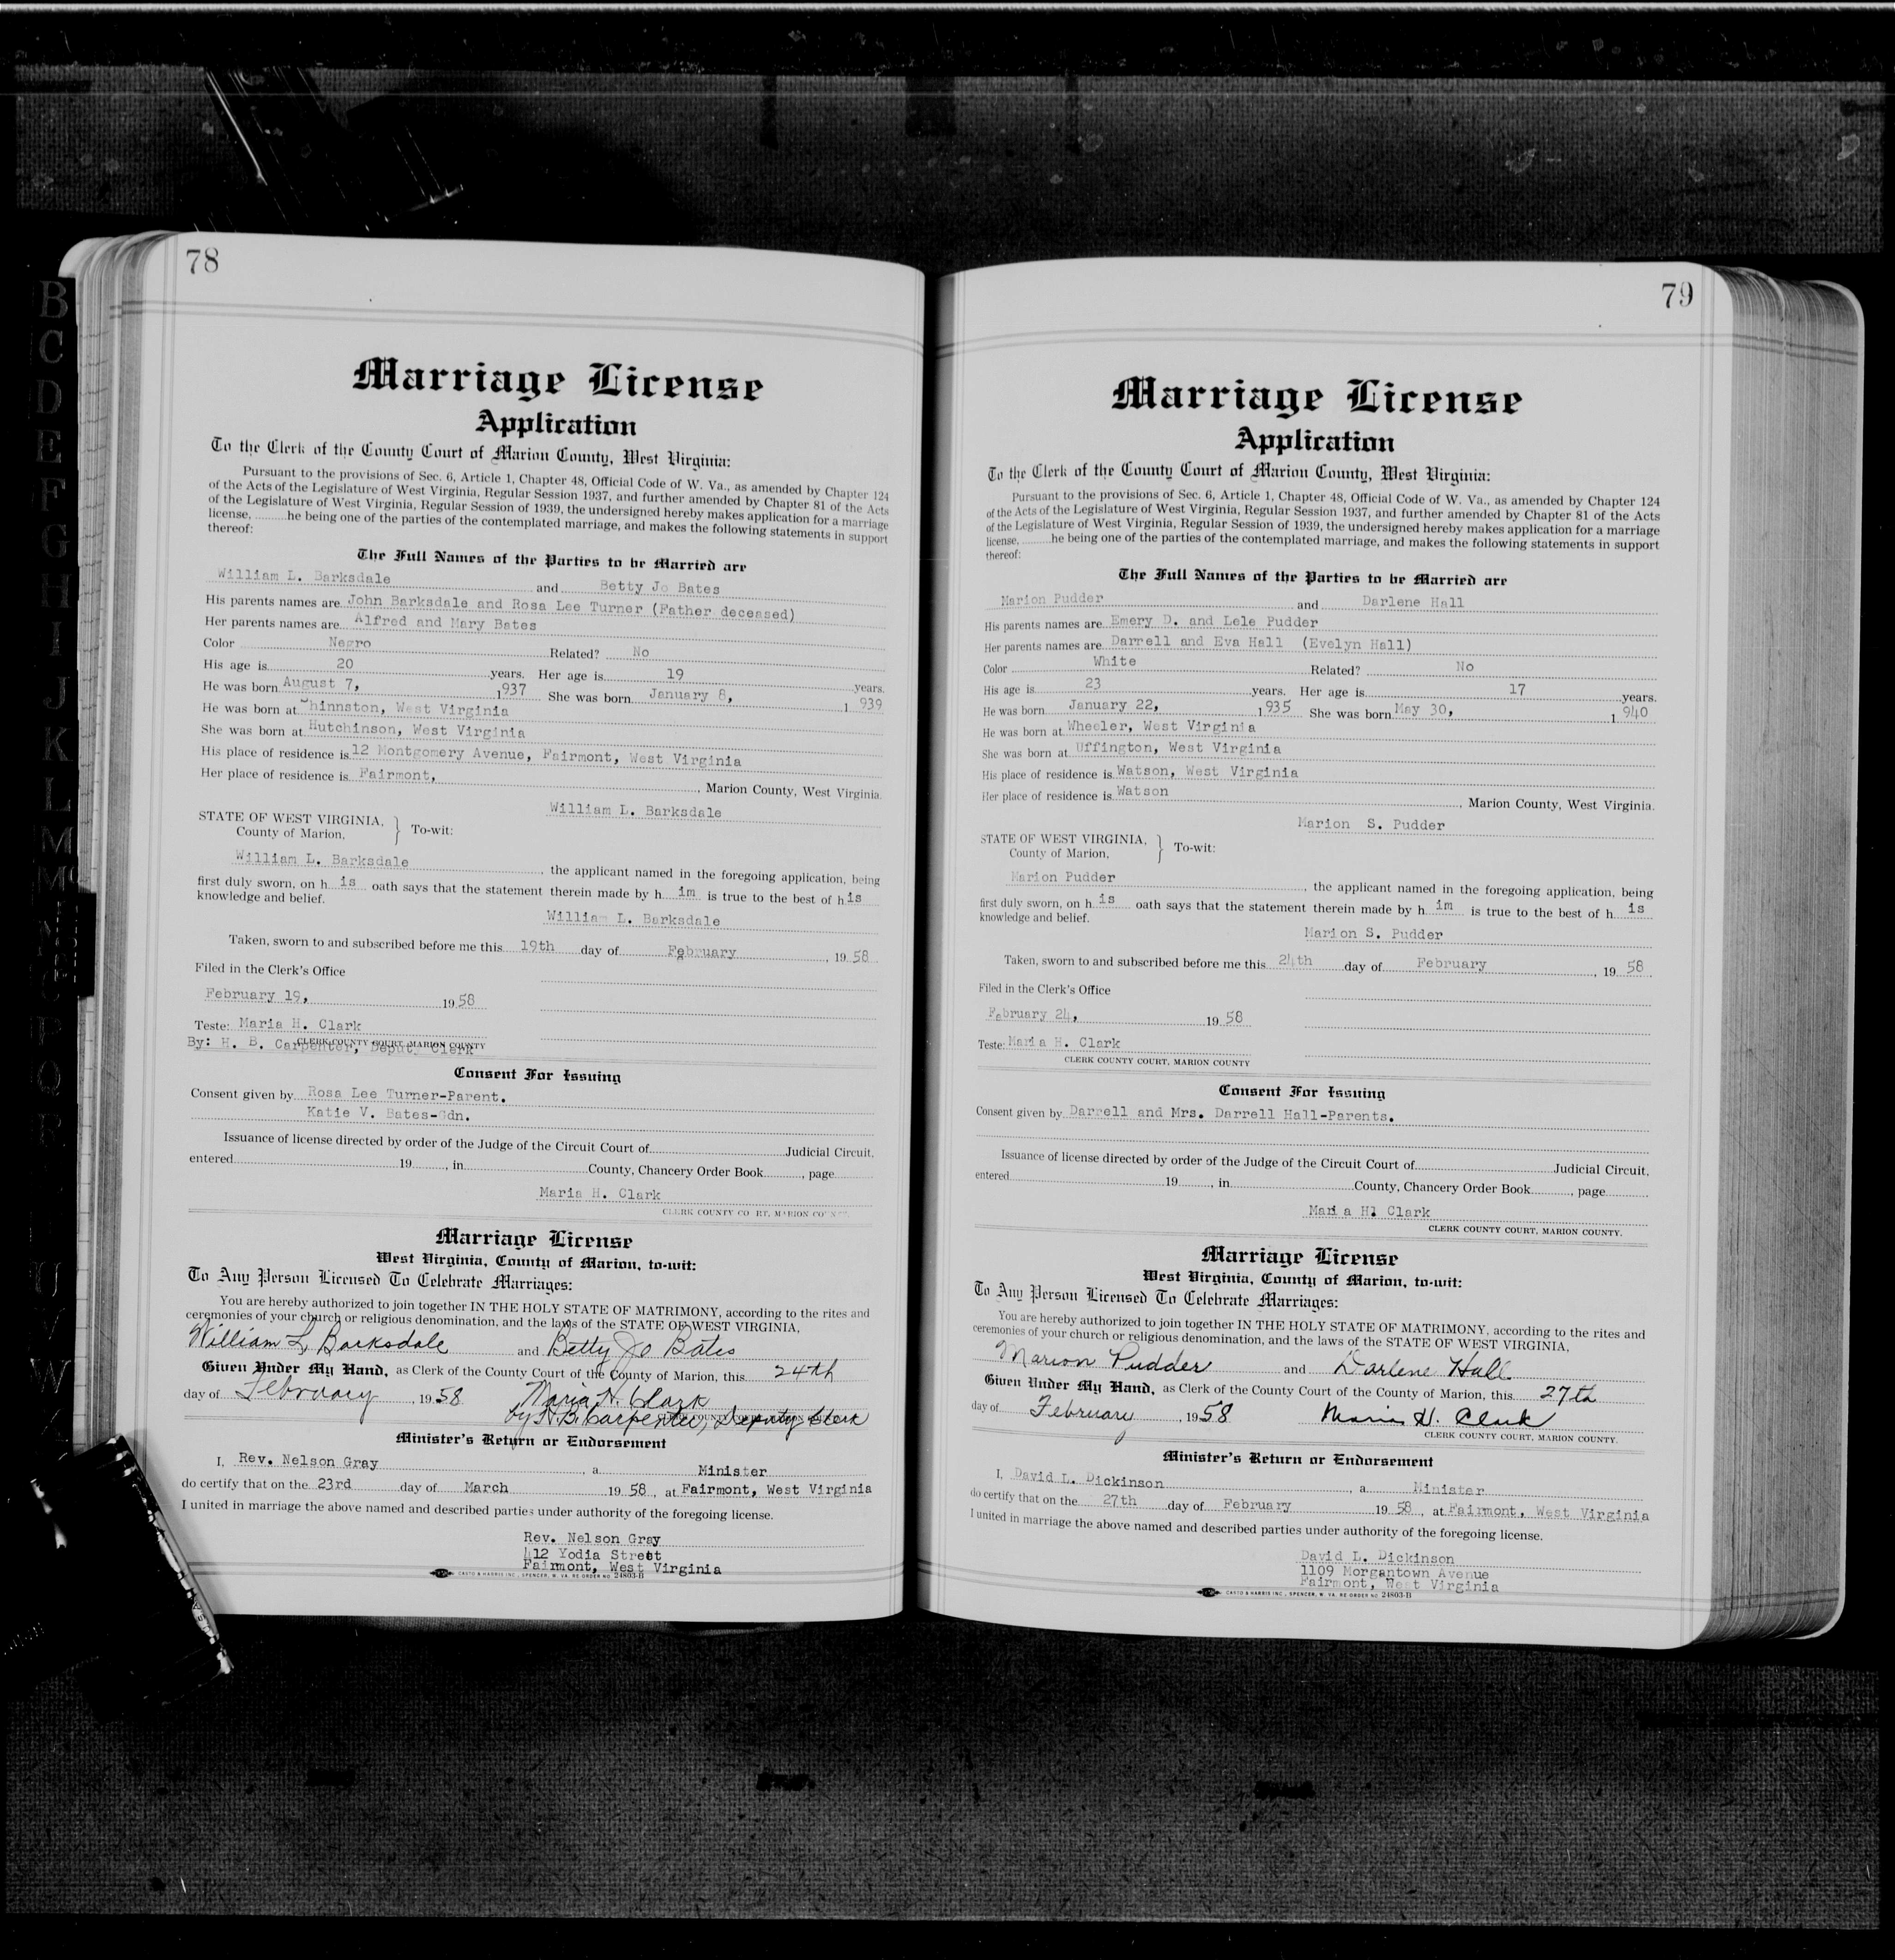 78
Marriage License
Application
To the Clerk of the County Court of Marion County, West Virginia:
Pursuant to the provisions of Sec. 6, Article 1, Chapter 48, Official Code of W. Va., as amended by Chapter 124
of the Acts of the Legislature of West Virginia, Regular Session 1937, and further amended by Chapter 81 of the Acts
of the Legislature of West Virginia, Regular Session of 1939, the undersigned hereby makes application for a marriage
license, ..........he being one of the parties of the contemplated marriage, and makes the following statements in support
thereof:
The Full Names of the Parties to be Married are
William L. Barksdale and Betty Jo Bates
His parents names are John Barksdale and Rosa Lee Turner (Father deceased)
Her parents names are Alfred and Mary Bates
Color Negro Related? No
His age is 20 years. Her age is 19 years.
He was born August 7, 1937 She was born January 8, 1939
He was born at Shinnston, West Virginia
She was born at Hutchinson, West Virginia
His place of residence is 12 Montgomery Avenue, Fairmont, West Virginia
Her place of residence is Fairmont, , Marion County, West Virginia.
William L. Barksdale
STATE OF WEST VIRGINIA,
County of Marion, } To-wit:
William L. Barksdale , the applicant named in the foregoing application, being
first duly sworn, on h is oath says that the statement therein made by h im is true to the best of h is
knowledge and belief.
William L. Barksdale
Taken, sworn to and subscribed before me this 19th day of February , 19 58
Filed in the Clerk's Office
February 19, 19 58
Teste: Maria H. Clark
CLERK COUNTY COURT, MARION COUNTY
By: H. B. Carpenter, Deputy Clerk
Consent For Issuing
Consent given by Rosa Lee Turner-Parent.
Katie V. Bates-Gdn.
Issuance of license directed by order of the Judge of the Circuit Court of Judicial Circuit,
entered 19 , in County, Chancery Order Book , page
Maria H. Clark
CLERK COUNTY CO RT, MARION COUNTY.
Marriage License
West Virginia, County of Marion, to-wit:
To Any Person Licensed To Celebrate Marriages:
You are hereby authorized to join together IN THE HOLY STATE OF MATRIMONY, according to the rites and
ceremonies of your church or religious denomination, and the laws of the STATE OF WEST VIRGINIA,
William L. Barksdale and Betty Jo Bates
Given Under My Hand, as Clerk of the County Court of the County of Marion, this 24th
day of February , 19 58 Maria H. Clark
by H. B. Carpenter, Deputy Clerk
Minister's Return or Endorsement
I, Rev. Nelson Gray , a Minister
do certify that on the 23rd day of March 19 58 , at Fairmont, West Virginia
I united in marriage the above named and described parties under authority of the foregoing license.
Rev. Nelson Gray
412 Yodia Street
Fairmont, West Virginia
CASTO & HARRIS INC., SPENCER, W. VA. RE-ORDER NO. 24803-B
79
Marriage License
Application
To the Clerk of the County Court of Marion County, West Virginia:
Pursuant to the provisions of Sec. 6, Article 1, Chapter 48, Official Code of W. Va., as amended by Chapter 124
of the Acts of the Legislature of West Virginia, Regular Session 1937, and further amended by Chapter 81 of the Acts
of the Legislature of West Virginia, Regular Session of 1939, the undersigned hereby makes application for a marriage
license, ..........he being one of the parties of the contemplated marriage, and makes the following statements in support
thereof:
The Full Names of the Parties to be Married are
Marion Pudder and Darlene Hall
His parents names are Emery D. and Lele Pudder
Her parents names are Darrell and Eva Hall (Evelyn Hall)
Color White Related? No
His age is 23 years. Her age is 17 years.
He was born January 22, 1935 She was born May 30, 1940
He was born at Wheeler, West Virginia
She was born at Uffington, West Virginia
His place of residence is Watson, West Virginia
Her place of residence is Watson , Marion County, West Virginia.
Marion S. Pudder
STATE OF WEST VIRGINIA,
County of Marion, } To-wit:
Marion Pudder , the applicant named in the foregoing application, being
first duly sworn, on h is oath says that the statement therein made by h im is true to the best of h is
knowledge and belief.
Marion S. Pudder
Taken, sworn to and subscribed before me this 24th day of February , 19 58
Filed in the Clerk's Office
February 24, 19 58
Teste: Maria H. Clark
CLERK COUNTY COURT, MARION COUNTY
Consent For Issuing
Consent given by Darrell and Mrs. Darrell Hall-Parents.
Issuance of license directed by order of the Judge of the Circuit Court of Judicial Circuit,
entered 19 , in County, Chancery Order Book , page
Maria Hl Clark
CLERK COUNTY COURT, MARION COUNTY.
Marriage License
West Virginia, County of Marion, to-wit:
To Any Person Licensed To Celebrate Marriages:
You are hereby authorized to join together IN THE HOLY STATE OF MATRIMONY, according to the rites and
ceremonies of your church or religious denomination, and the laws of the STATE OF WEST VIRGINIA,
Marion Pudder and Darlene Hall
Given Under My Hand, as Clerk of the County Court of the County of Marion, this 27th
day of February , 19 58 Maria H. Clark
CLERK COUNTY COURT, MARION COUNTY.
Minister's Return or Endorsement
I, David L. Dickinson , a Minister
do certify that on the 27th day of February 19 58 , at Fairmont, West Virginia
I united in marriage the above named and described parties under authority of the foregoing license.
David L. Dickinson
1109 Morgantown Avenue
Fairmont, West Virginia
CASTO & HARRIS INC., SPENCER, W. VA. RE-ORDER NO. 24803-B
B
C
D
E
F
G
H
I
J
K
L
M